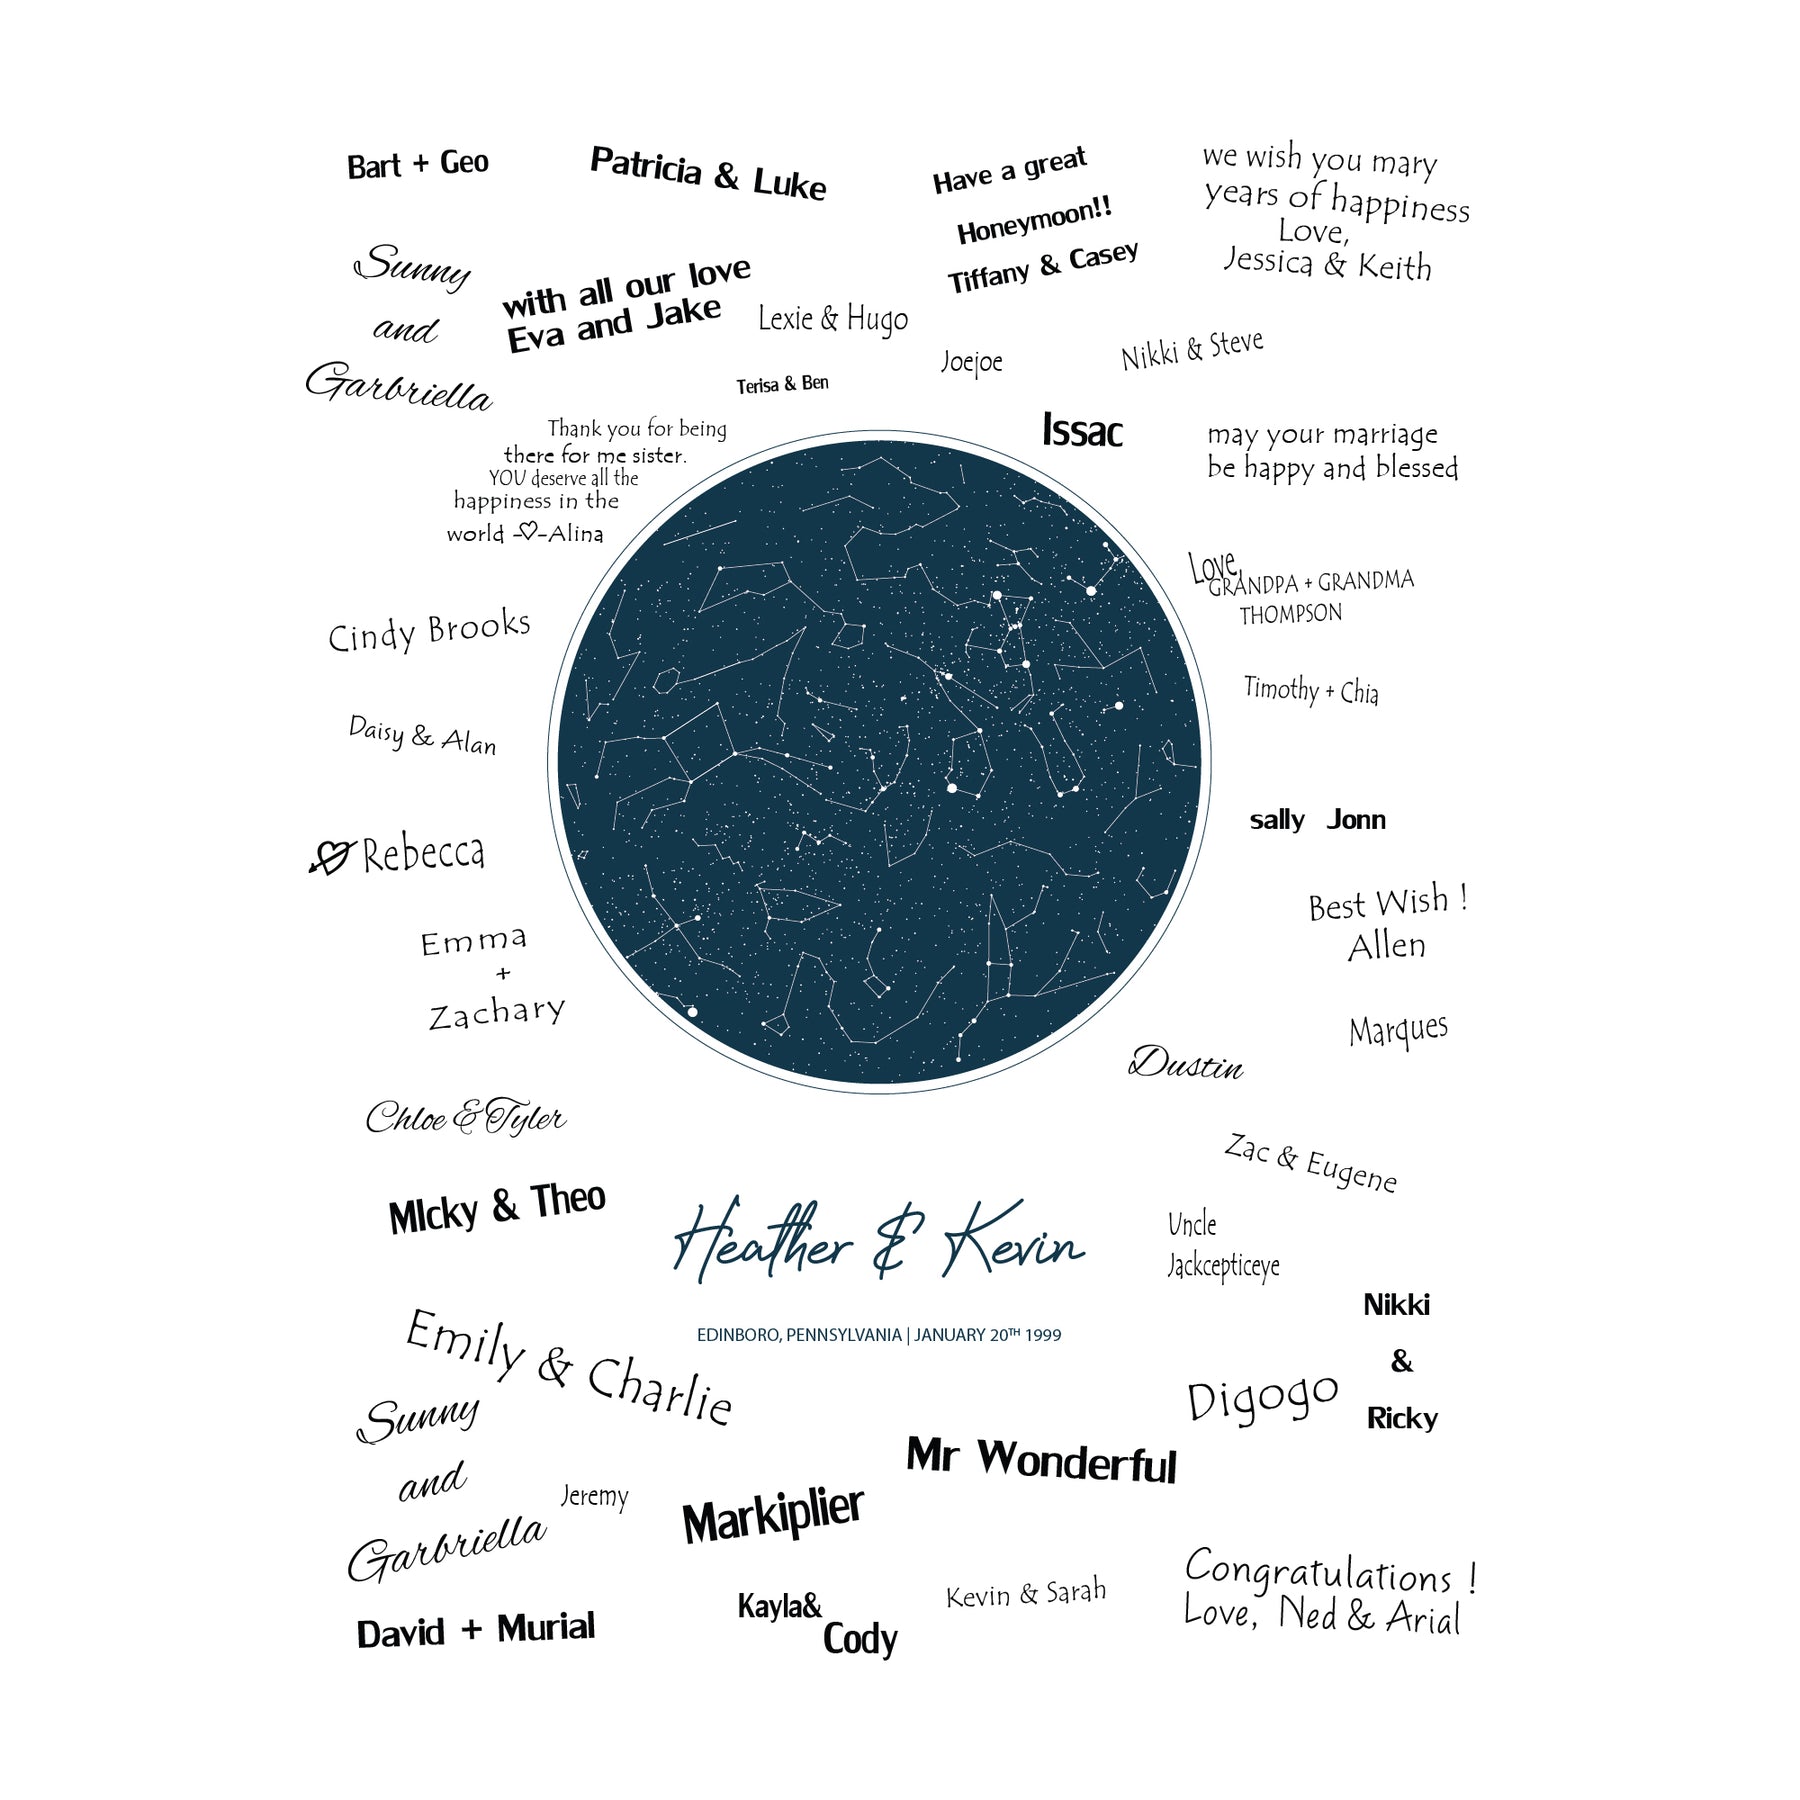 Bart + Geo
Patricia & Luke
Have a great
Honeymoon!!
Tiffany & Casey
we wish you mary
years of happiness
Love,
Jessica & Keith
Sunny
and
Garbriella
with all our love
Eva and Jake
Lexie & Hugo
Terisa & Ben
Joejoe
Nikki & Steve
Issac
may your marriage
be happy and blessed
Thank you for being
there for me sister.
YOU deserve all the
happiness in the
world -♡-Alina
Love,
GRANDPA + GRANDMA
THOMPSON
Cindy Brooks
Timothy + Chia
Daisy & Alan
sally Jonn
Rebecca
Best Wish !
Allen
Emma
+
Zachary
Marques
Dustin
Chloe & Tyler
Zac & Eugene
MIcky & Theo
Heather & Kevin
EDINBORO, PENNSYLVANIA | JANUARY 20TH 1999
Uncle
Jackcepticeye
Nikki
&
Ricky
Emily & Charlie
Digogo
Sunny
and
Garbriella
Jeremy
Markiplier
Mr Wonderful
David + Murial
Kayla&
Cody
Kevin & Sarah
Congratulations !
Love, Ned & Arial